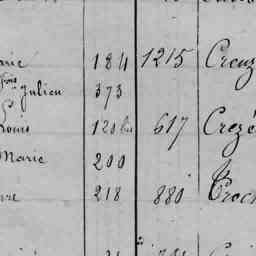 arie 184 1215 Creuz
fçois Julien 373
Louis 120 bis 617 Crezé
Marie 200
218 880 Croc